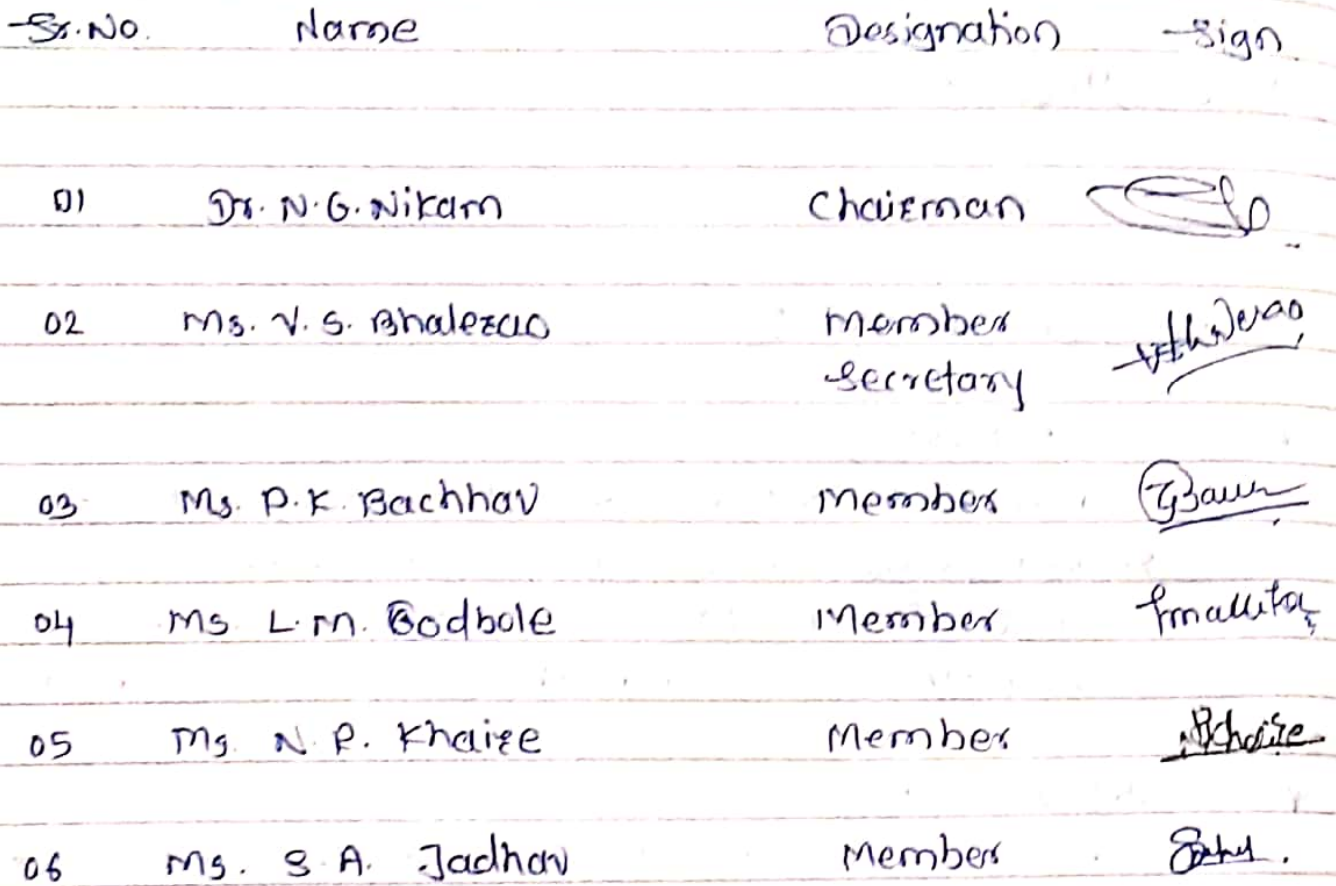 Sr.No. Name Designation Sign
01 Dr. N.G. Nikam Chairman
02 Ms. V. S. Bhalerao Member
Secretary
03 Ms. P.K. Bachhav Member
04 Ms L.M. Godbole Member
05 Ms. N. P. Khaire Member
06 Ms. S. A. Jadhav Member